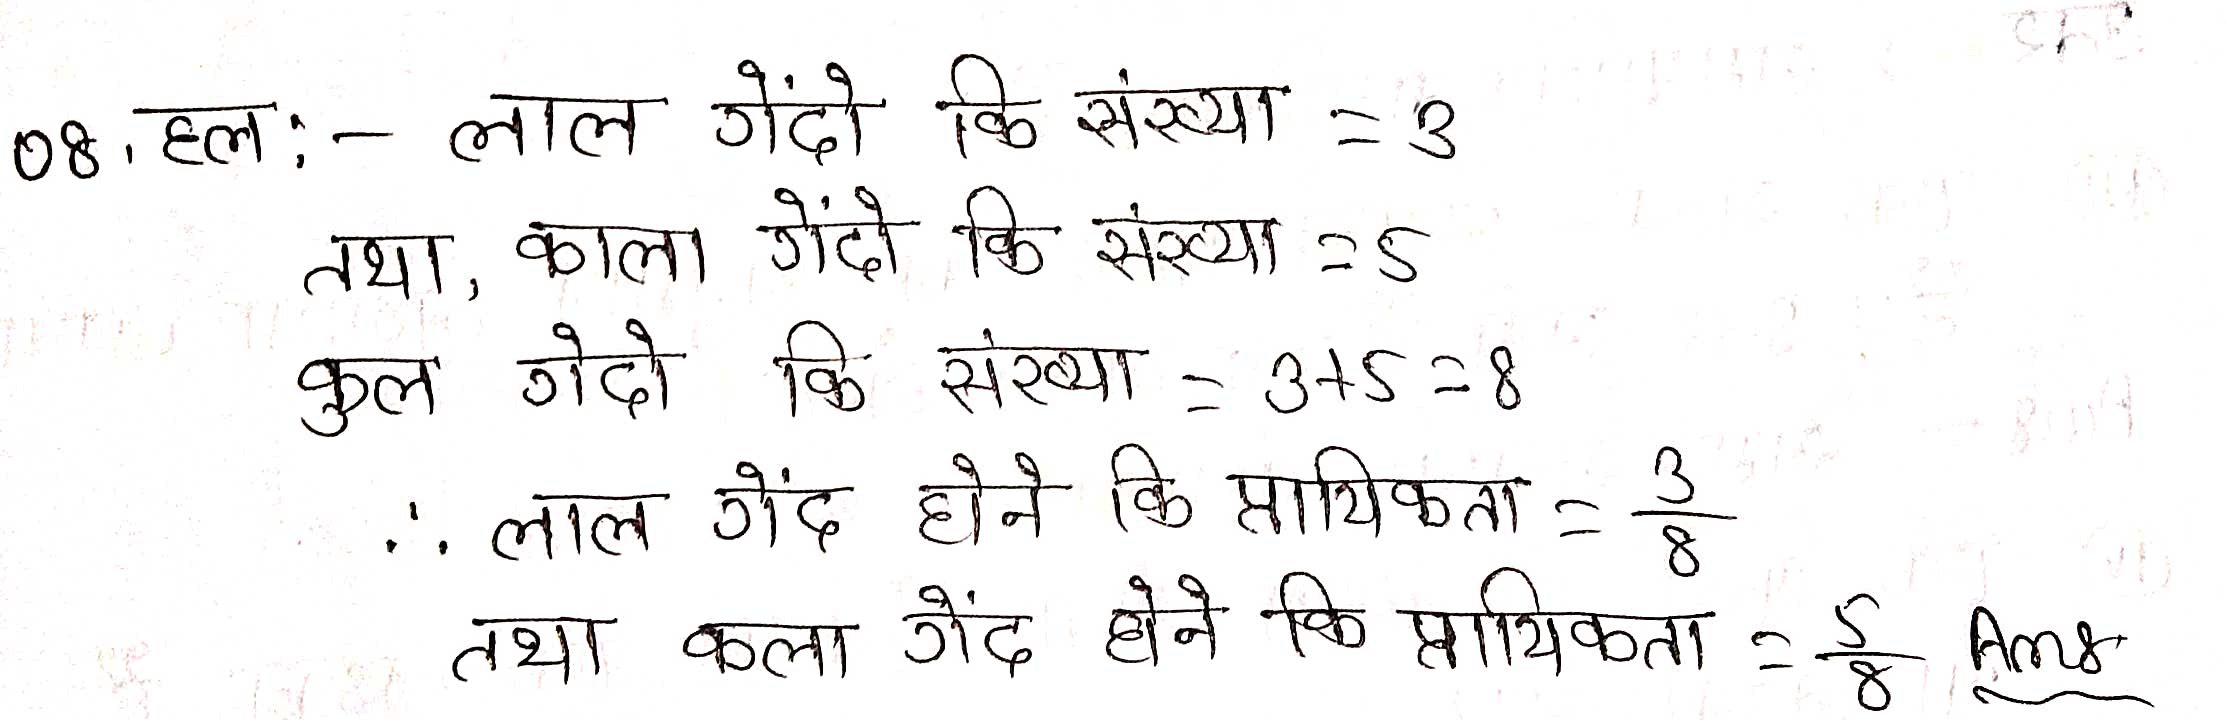 08. हल :- लाल गेंदो कि संख्या = 3
तथा, काला गेंदो कि संख्या = 5
कुल गेदो कि संख्या = 3+5 = 8
∴ लाल गेंद होने कि प्रायिकता = 3/8
तथा कला गेंद होने कि प्रायिकता = 5/8 Ans